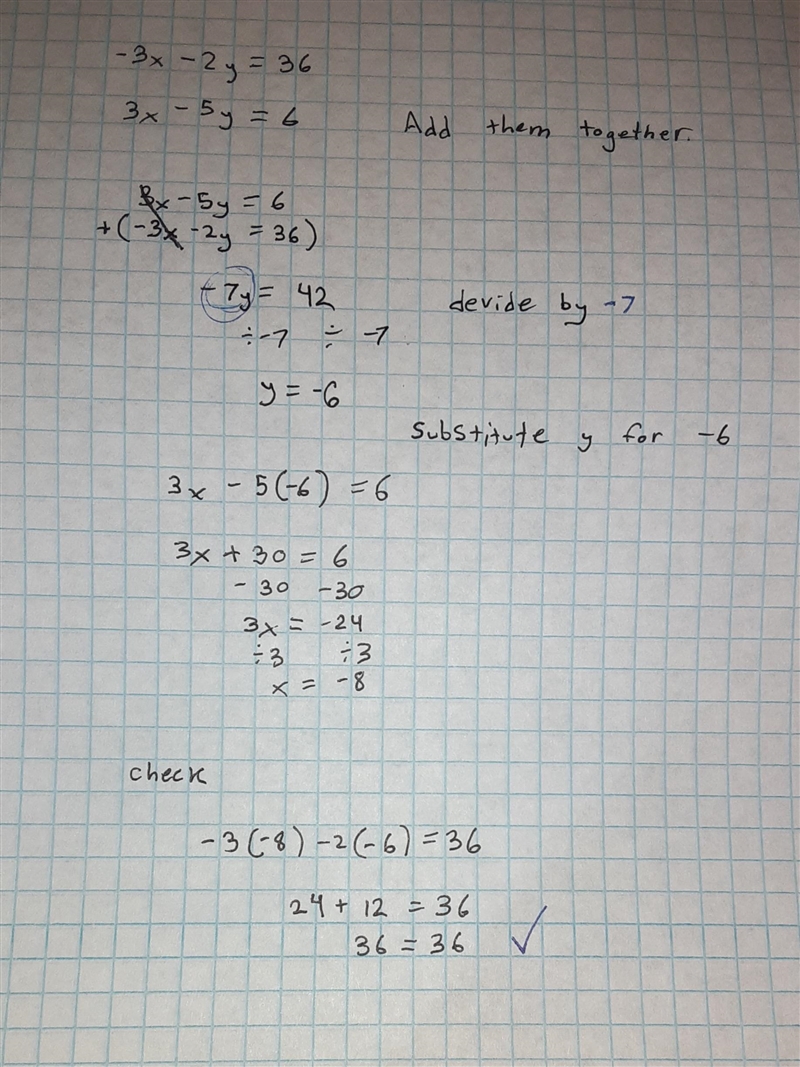 -3x - 2y = 36
3x - 5y = 6 Add them together.
3x - 5y = 6
+(-3x - 2y = 36)
-7y = 42 devide by -7
÷-7 ÷ -7
y = -6
Substitute y for -6
3x - 5(-6) = 6
3x + 30 = 6
- 30 -30
3x = -24
÷3 ÷3
x = -8
check
-3(-8) -2(-6) = 36
24 + 12 = 36
36 = 36 ✓